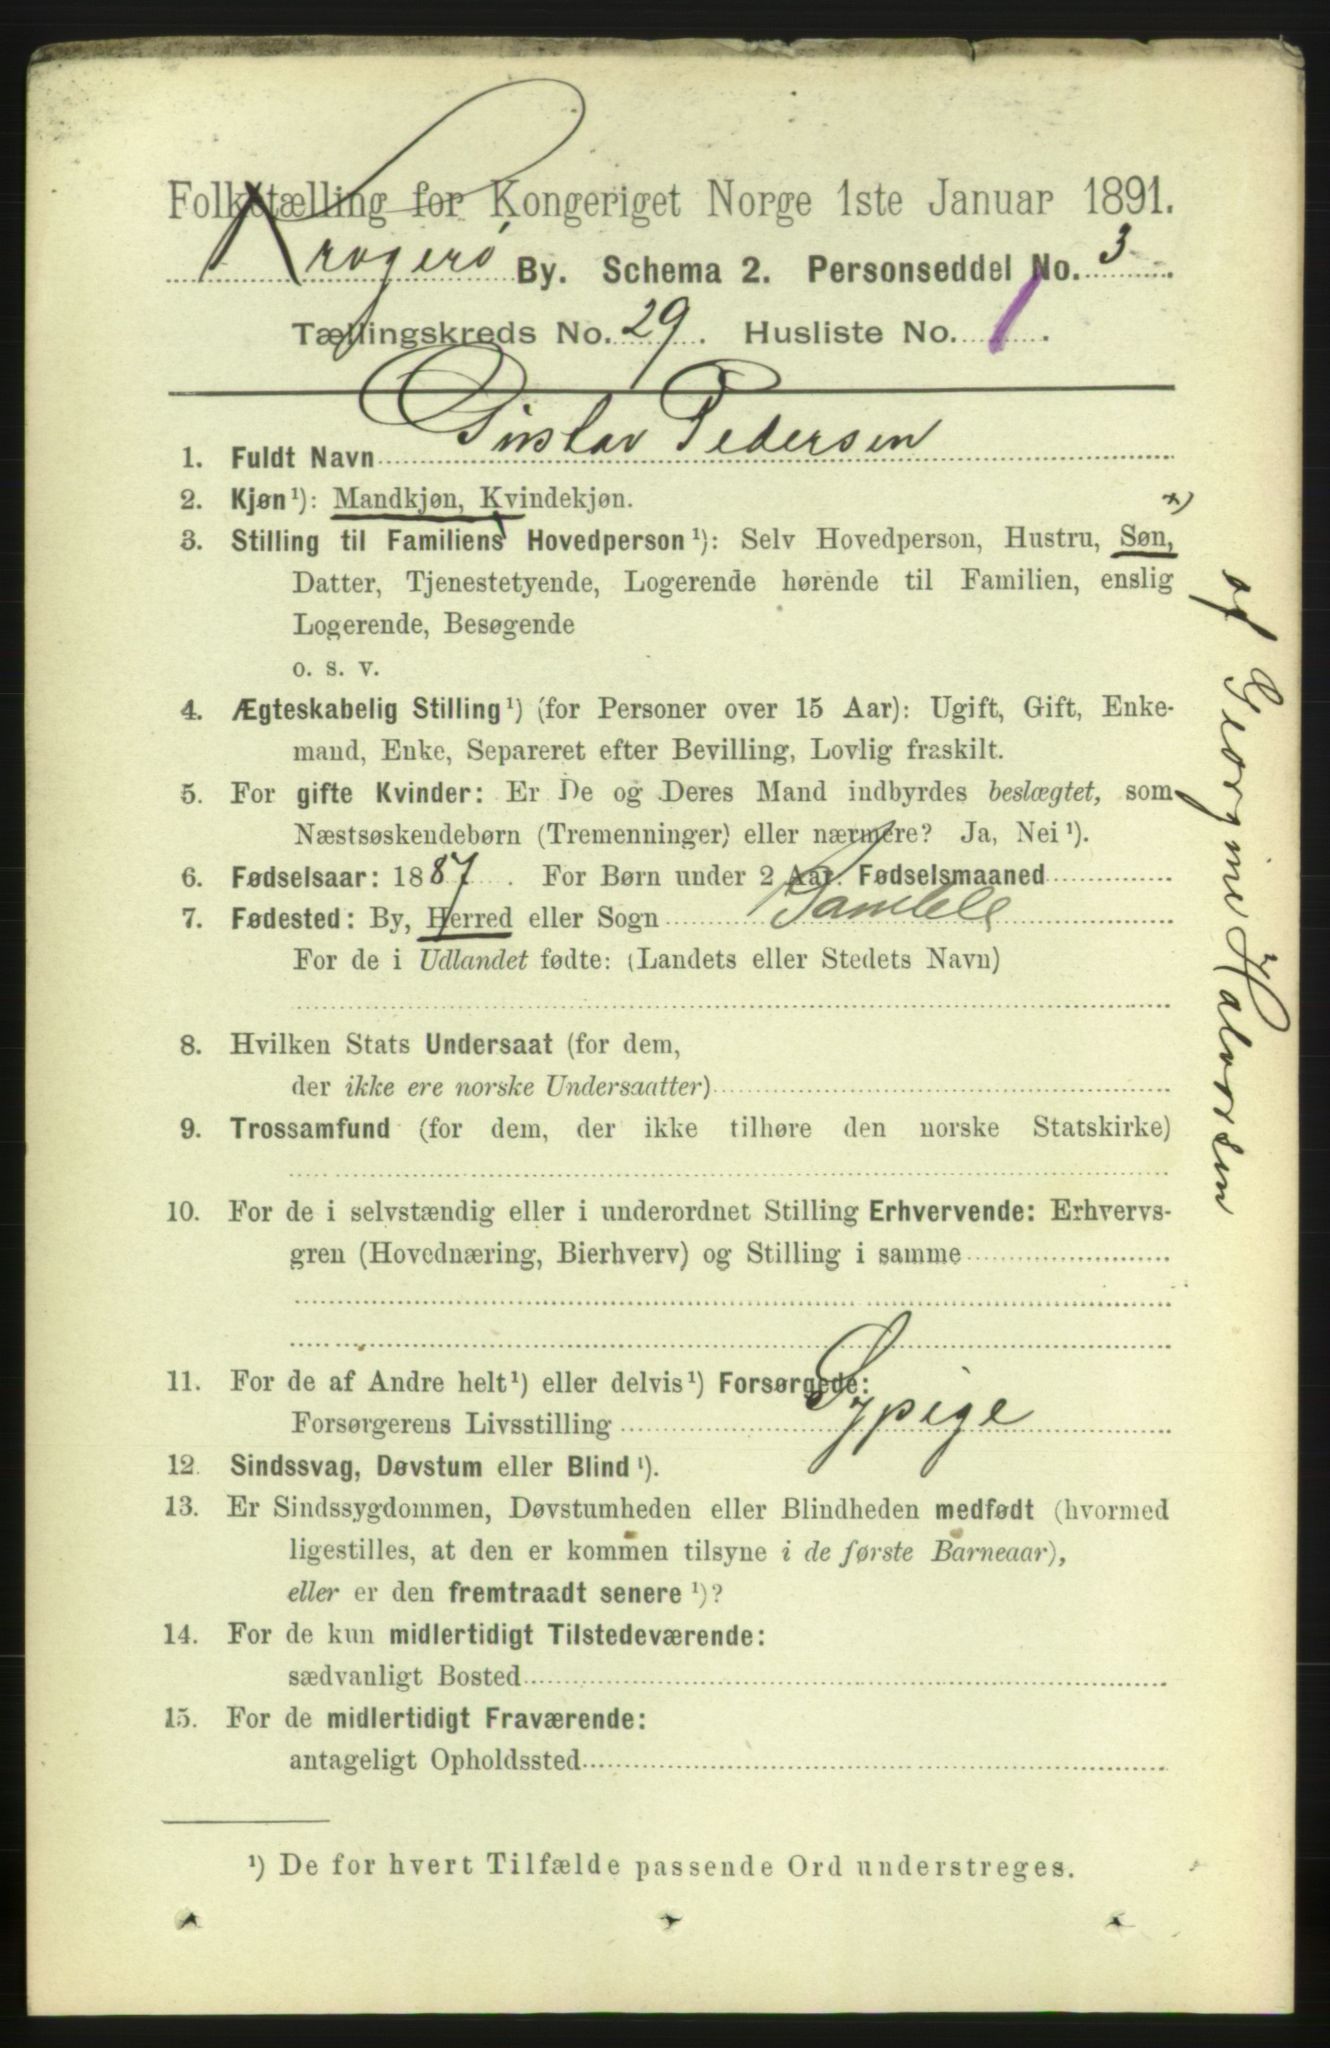 Folketælling for Kongeriget Norge 1ste Januar 1891.
Kragerø By. Schema 2. Personseddel No. 3
Tællingskreds No. 29. Husliste No. 1.
1. Fuldt Navn Gustav Pedersen
2. Kjøn ¹): Mandkjøn, Kvindekjøn.
3. Stilling til Familiens Hovedperson ¹): Selv Hovedperson, Hustru, Søn, x)
Datter, Tjenestetyende, Logerende hørende til Familien, enslig
Logerende, Besøgende
o. s. v.
4. Ægteskabelig Stilling ¹) (for Personer over 15 Aar): Ugift, Gift, Enke-
mand, Enke, Separeret efter Bevilling, Lovlig fraskilt.
5. For gifte Kvinder: Er De og Deres Mand indbyrdes beslægtet, som
Næstsøskendebørn (Tremenninger) eller nærmere? Ja, Nei ¹).
6. Fødselsaar: 1887. For Børn under 2 Aar. Fødselsmaaned
7. Fødested: By, Herred eller Sogn Bamble
For de i Udlandet fødte: (Landets eller Stedets Navn)
8. Hvilken Stats Undersaat (for dem,
der ikke ere norske Undersaatter)
9. Trossamfund (for dem, der ikke tilhøre den norske Statskirke)
10. For de i selvstændig eller i underordnet Stilling Erhvervende: Erhvervs-
gren (Hovednæring, Bierhverv) og Stilling i samme
11. For de af Andre helt ¹) eller delvis ¹) Forsørgede:
Forsørgerens Livsstilling Sypige
12. Sindssvag, Døvstum eller Blind ¹).
13. Er Sindssygdommen, Døvstumheden eller Blindheden medfødt (hvormed
ligestilles, at den er kommen tilsyne i de første Barneaar),
eller er den fremtraadt senere ¹)?
14. For de kun midlertidigt Tilstedeværende:
sædvanligt Bosted
15. For de midlertidigt Fraværende:
antageligt Opholdssted
¹) De for hvert Tilfælde passende Ord understreges.
af Georgine Halvorsen